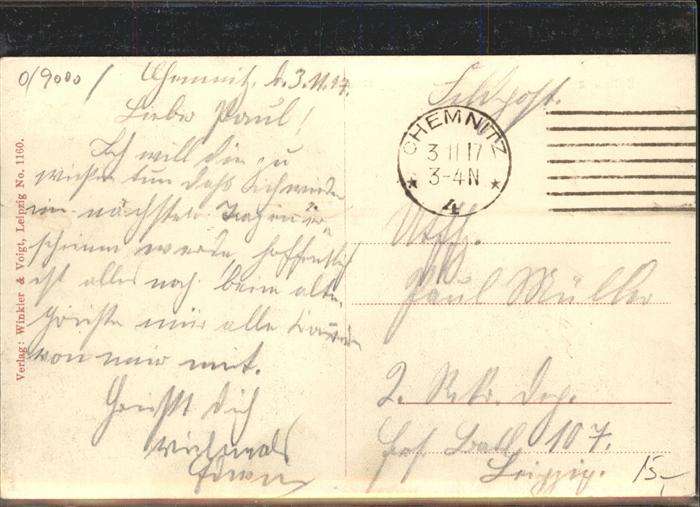 0/9000/
Chemnitz, d. 3.11.17.
Lieber Paul!
Ich will dir zu
wissen tun daß
im nächsten
scheinen werde, hoffentlich
ist alles noch beim alten
Grüße mir alle
von mir mit.
Grüßt Dich
vielmals
Verlag: Winkler & Voigt, Leipzig No. 1160.
Feldpost.
CHEMNITZ
3 11 17
3-4N
* 4 *
Uffz.
Paul Müller
2. Rekr. Dep.
Ball. 107.
Leipzig.
15,-